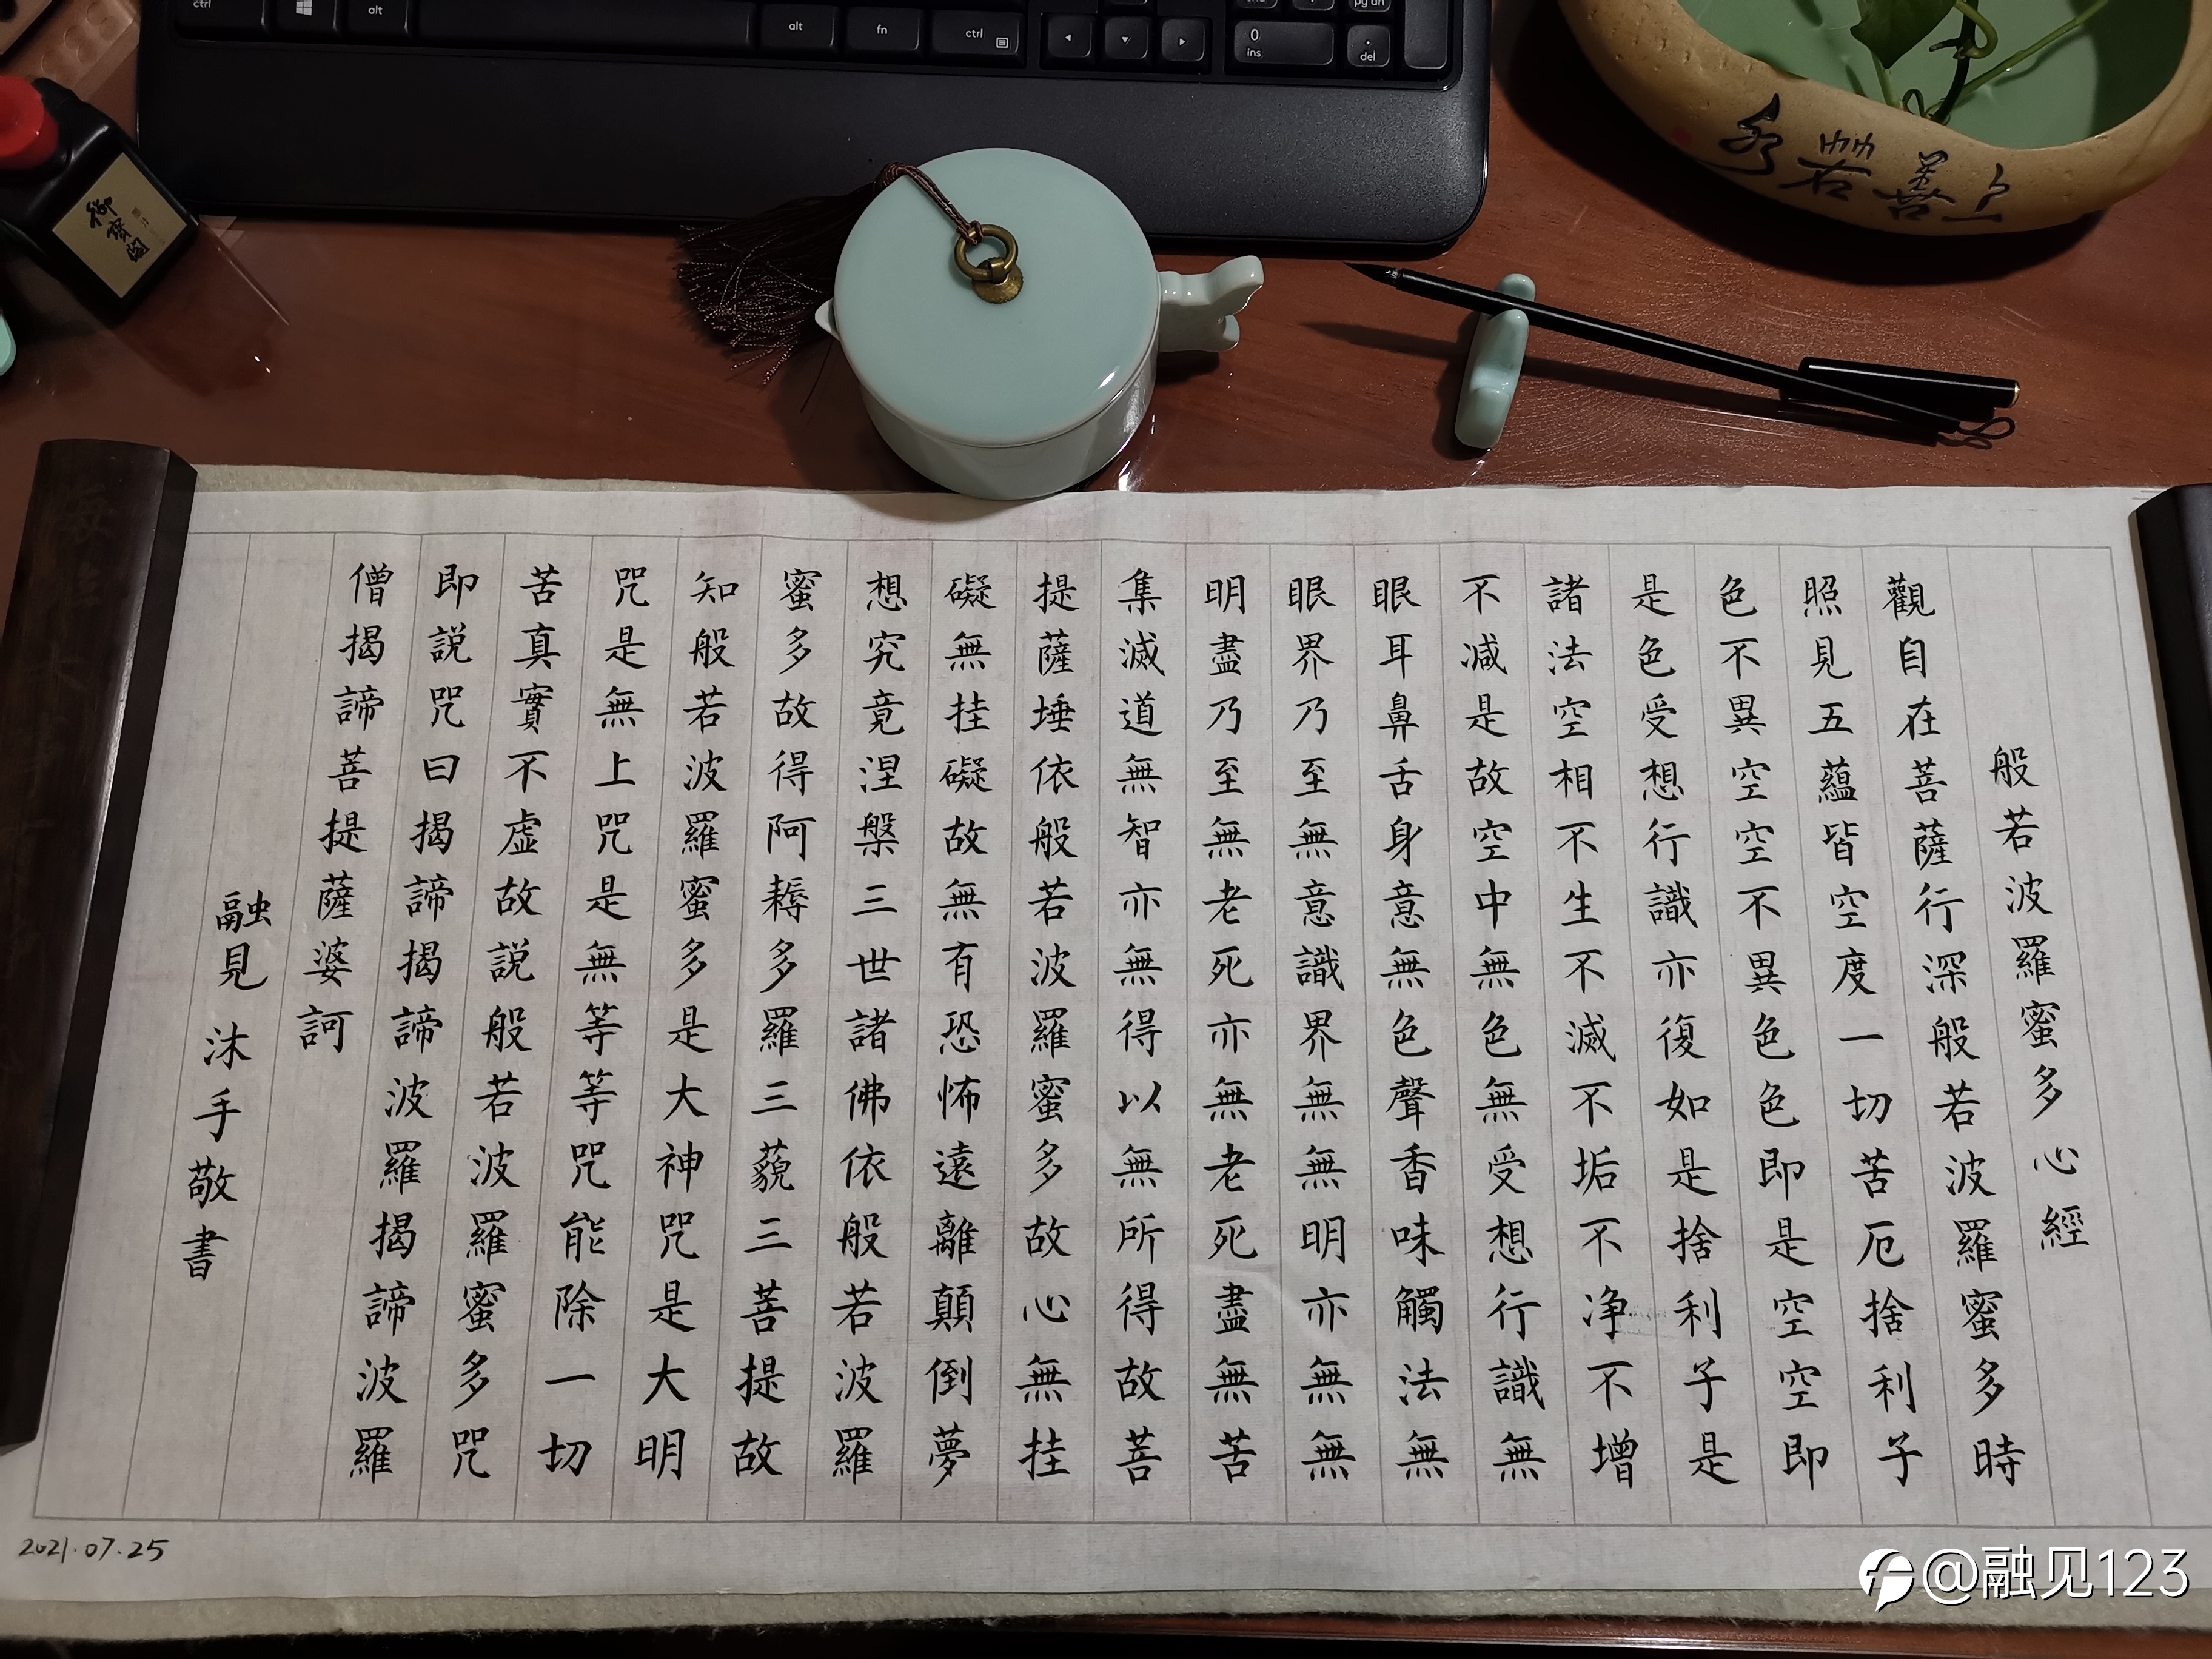 ctrl
alt
alt
fn
ctrl
0
ins
.
del
pg dn
御寶閣
上善若水
般若波羅蜜多心經
觀自在菩薩行深般若波羅蜜多時
照見五蘊皆空度一切苦厄捨利子
色不異空空不異色色即是空空即
是色受想行識亦復如是捨利子是
諸法空相不生不滅不垢不净不增
不减是故空中無色無受想行識無
眼耳鼻舌身意無色聲香味觸法無
眼界乃至無意識界無無明亦無無
明盡乃至無老死亦無老死盡無苦
集滅道無智亦無得以無所得故菩
提薩埵依般若波羅蜜多故心無挂
礙無挂礙故無有恐怖遠離顛倒夢
想究竟涅槃三世諸佛依般若波羅
蜜多故得阿耨多羅三藐三菩提故
知般若波羅蜜多是大神咒是大明
咒是無上咒是無等等咒能除一切
苦真實不虛故說般若波羅蜜多咒
即說咒曰揭諦揭諦波羅揭諦波羅
僧揭諦菩提薩婆訶
融見 沐手敬書
2021.07.25
@融见123